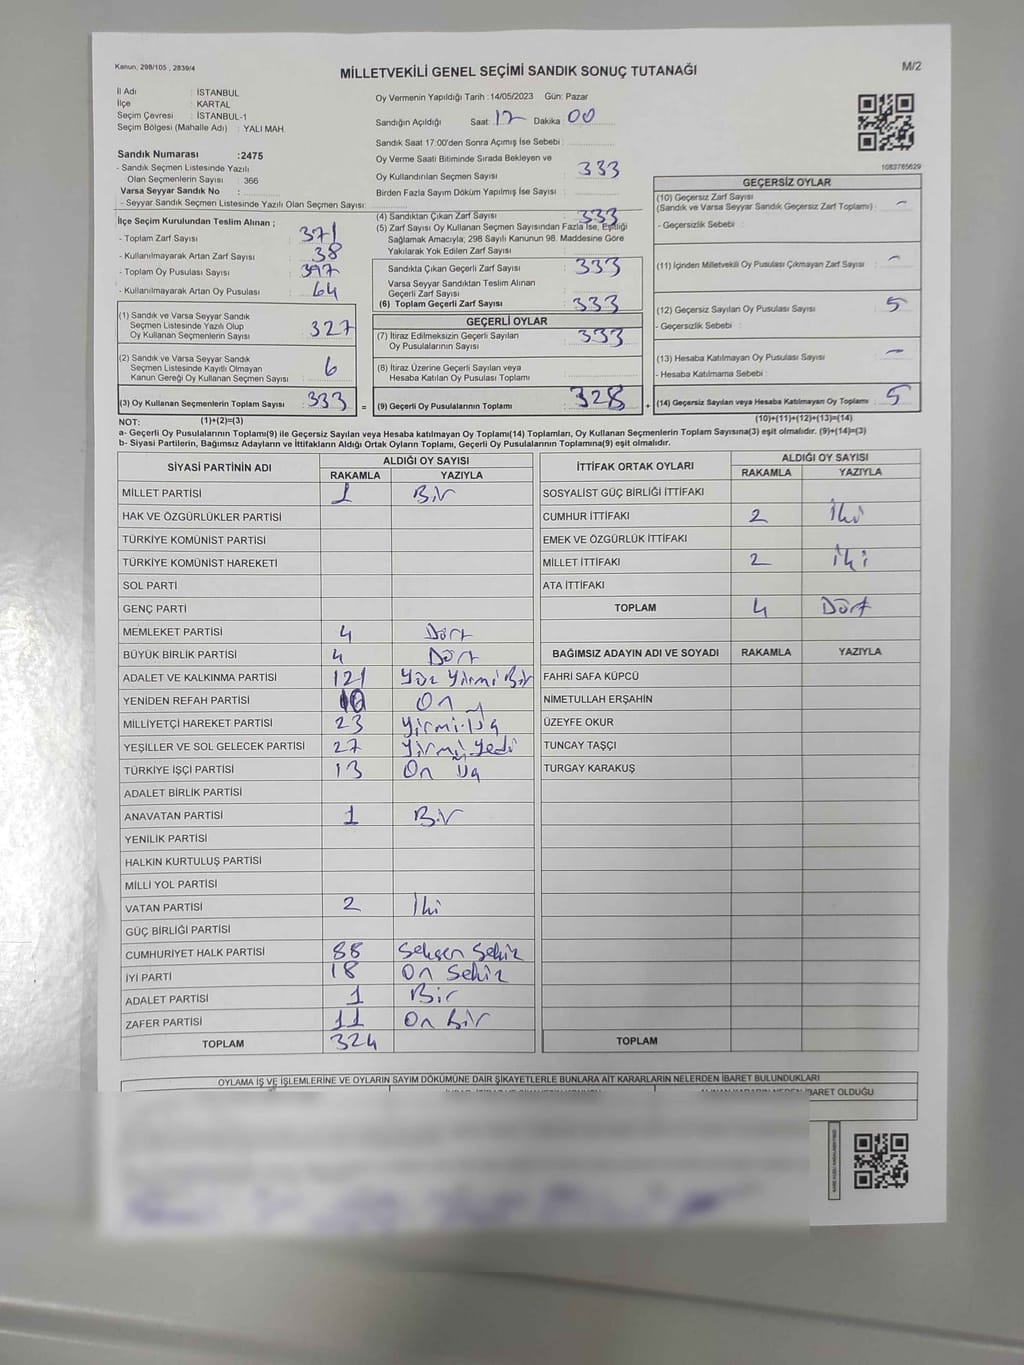 Kanun, 298/105 , 2839/4
MİLLETVEKİLİ GENEL SEÇİMİ SANDIK SONUÇ TUTANAĞI
M/2
İl Adı : İSTANBUL
İlçe : KARTAL
Seçim Çevresi : İSTANBUL-1
Seçim Bölgesi (Mahalle Adı) : YALI MAH.
Sandık Numarası :2475
- Sandık Seçmen Listesinde Yazılı
Olan Seçmenlerin Sayısı : 366
Varsa Seyyar Sandık No :
- Seyyar Sandık Seçmen Listesinde Yazılı Olan Seçmen Sayısı:
İlçe Seçim Kurulundan Teslim Alınan ;
- Toplam Zarf Sayısı : 371
- Kullanılmayarak Artan Zarf Sayısı : 38
- Toplam Oy Pusulası Sayısı : 397
- Kullanılmayarak Artan Oy Pusulası : 64
(1) Sandık ve Varsa Seyyar Sandık
Seçmen Listesinde Yazılı Olup
Oy Kullanan Seçmenlerin Sayısı : 327
(2) Sandık ve Varsa Seyyar Sandık
Seçmen Listesinde Kayıtlı Olmayan
Kanun Gereği Oy Kullanan Seçmen Sayısı : 6
(3) Oy Kullanan Seçmenlerin Toplam Sayısı : 333 =
Oy Vermenin Yapıldığı Tarih :14/05/2023 Gün: Pazar
Sandığın Açıldığı Saat: 17 Dakika : 00
Sandık Saat 17:00'den Sonra Açımış İse Sebebi :
Oy Verme Saati Bitiminde Sırada Bekleyen ve
Oy Kullandırılan Seçmen Sayısı : 333
Birden Fazla Sayım Döküm Yapılmış İse Sayısı :
(4) Sandıktan Çıkan Zarf Sayısı : 333
(5) Zarf Sayısı Oy Kullanan Seçmen Sayısından Fazla İse, Eşitliği
Sağlamak Amacıyla, 298 Sayılı Kanunun 98. Maddesine Göre
Yakılarak Yok Edilen Zarf Sayısı :
Sandıkta Çıkan Geçerli Zarf Sayısı : 333
Varsa Seyyar Sandıktan Teslim Alınan
Geçerli Zarf Sayısı :
(6) Toplam Geçerli Zarf Sayısı : 333
GEÇERLİ OYLAR
(7) İtiraz Edilmeksizin Geçerli Sayılan
Oy Pusulalarının Sayısı : 333
(8) İtiraz Üzerine Geçerli Sayılan veya
Hesaba Katılan Oy Pusulası Toplamı :
(9) Geçerli Oy Pusulalarının Toplamı : 328 +
1083765629
GEÇERSİZ OYLAR
(10) Geçersiz Zarf Sayısı
(Sandık ve Varsa Seyyar Sandık Geçersiz Zarf Toplamı) : -
- Geçersizlik Sebebi :
(11) İçinden Milletvekili Oy Pusulası Çıkmayan Zarf Sayısı : -
(12) Geçersiz Sayılan Oy Pusulası Sayısı : 5
- Geçersizlik Sebebi :
(13) Hesaba Katılmayan Oy Pusulası Sayısı : -
- Hesaba Katılmama Sebebi :
(14) Geçersiz Sayılan veya Hesaba Katılmayan Oy Toplamı : 5
NOT: (1)+(2)=(3) (10)+(11)+(12)+(13)=(14)
a- Geçerli Oy Pusulalarının Toplamı(9) ile Geçersiz Sayılan veya Hesaba katılmayan Oy Toplamı(14) Toplamları, Oy Kullanan Seçmenlerin Toplam Sayısına(3) eşit olmalıdır. (9)+(14)=(3)
b- Siyasi Partilerin, Bağımsız Adayların ve İttifakların Aldığı Ortak Oyların Toplamı, Geçerli Oy Pusulalarının Toplamına(9) eşit olmalıdır.
SİYASİ PARTİNİN ADI ALDIĞI OY SAYISI
RAKAMLA YAZIYLA
MİLLET PARTİSİ 1 Bir
HAK VE ÖZGÜRLÜKLER PARTİSİ
TÜRKİYE KOMÜNİST PARTİSİ
TÜRKİYE KOMÜNİST HAREKETİ
SOL PARTİ
GENÇ PARTİ
MEMLEKET PARTİSİ 4 Dört
BÜYÜK BİRLİK PARTİSİ 4 Dört
ADALET VE KALKINMA PARTİSİ 121 Yüz Yirmi Bir
YENİDEN REFAH PARTİSİ 10 On
MİLLİYETÇİ HAREKET PARTİSİ 23 Yirmi Üç
YEŞİLLER VE SOL GELECEK PARTİSİ 27 Yirmi Yedi
TÜRKİYE İŞÇİ PARTİSİ 13 On Üç
ADALET BİRLİK PARTİSİ
ANAVATAN PARTİSİ 1 Bir
YENİLİK PARTİSİ
HALKIN KURTULUŞ PARTİSİ
MİLLİ YOL PARTİSİ
VATAN PARTİSİ 2 İki
GÜÇ BİRLİĞİ PARTİSİ
CUMHURİYET HALK PARTİSİ 88 Seksen Sekiz
İYİ PARTİ 18 On Sekiz
ADALET PARTİSİ 1 Bir
ZAFER PARTİSİ 11 On Bir
TOPLAM 324
İTTİFAK ORTAK OYLARI ALDIĞI OY SAYISI
RAKAMLA YAZIYLA
SOSYALİST GÜÇ BİRLİĞİ İTTİFAKI
CUMHUR İTTİFAKI 2 İki
EMEK VE ÖZGÜRLÜK İTTİFAKI
MİLLET İTTİFAKI 2 İki
ATA İTTİFAKI
TOPLAM 4 Dört
BAĞIMSIZ ADAYIN ADI VE SOYADI RAKAMLA YAZIYLA
FAHRİ SAFA KÜPCÜ
NİMETULLAH ERŞAHİN
ÜZEYFE OKUR
TUNCAY TAŞÇI
TURGAY KARAKUŞ
TOPLAM
OYLAMA İŞ VE İŞLEMLERİNE VE OYLARIN SAYIM DÖKÜMÜNE DAİR ŞİKAYETLERLE BUNLARA AİT KARARLARIN NELERDEN İBARET BULUNDUKLARI
İBARET OLDUĞU